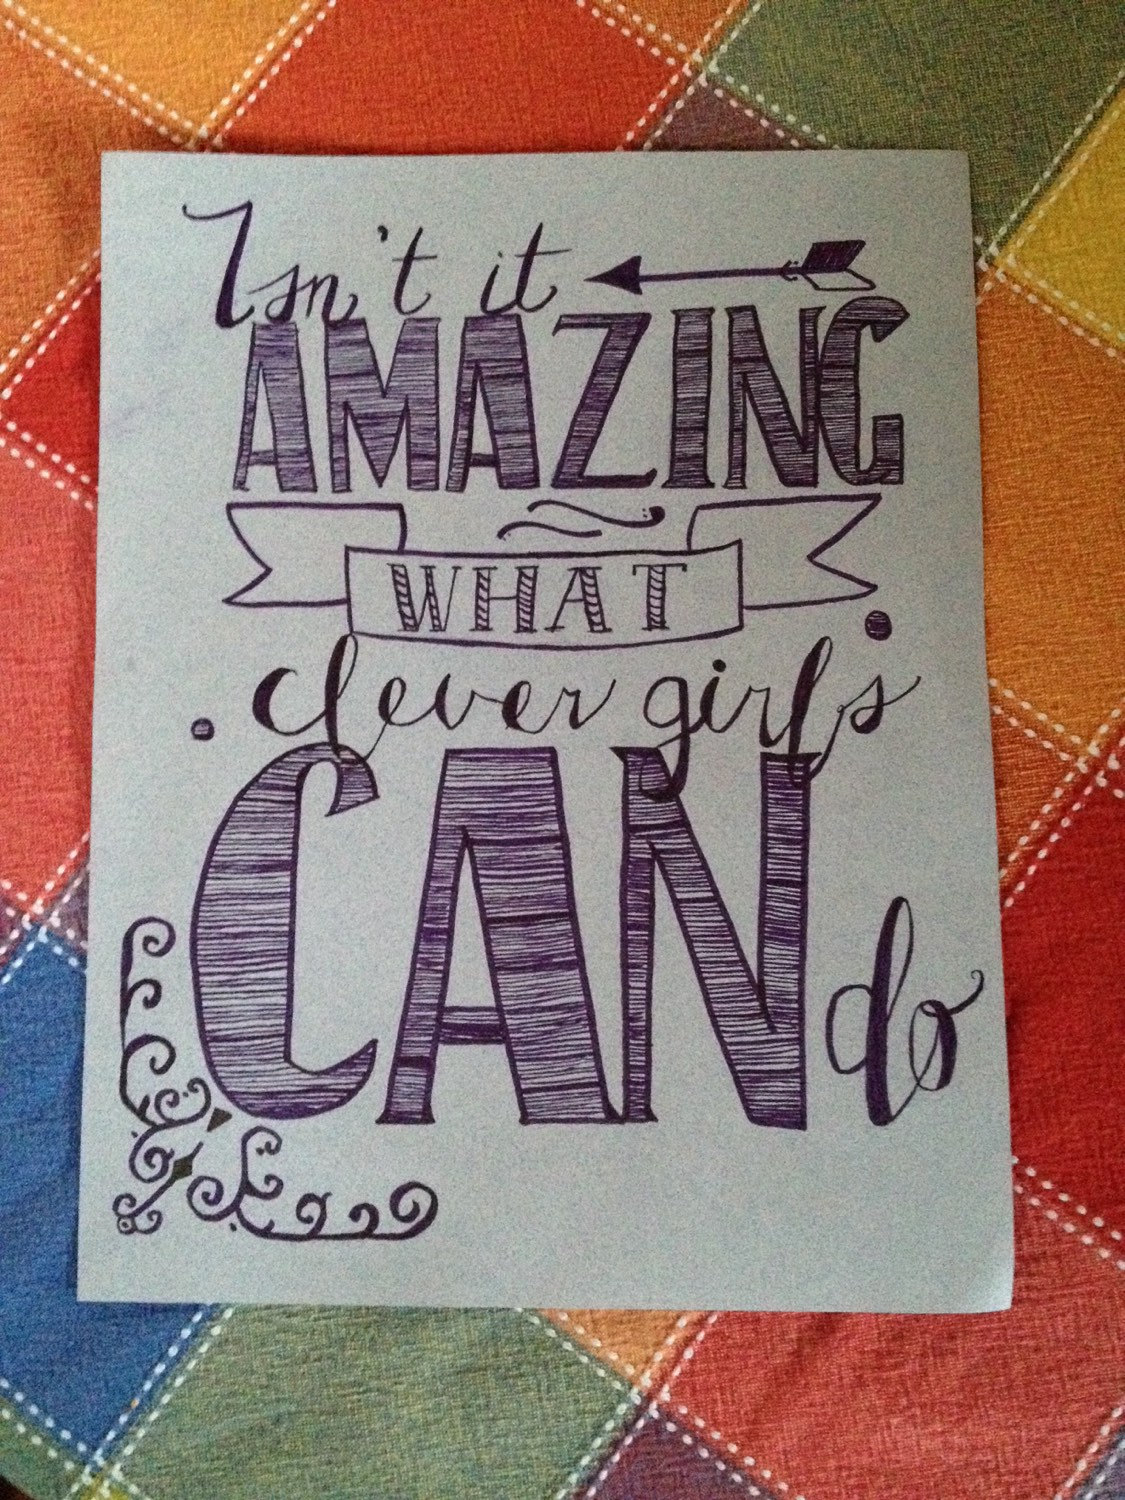 Isn't it
AMAZING
WHAT
clever girls
CAN do